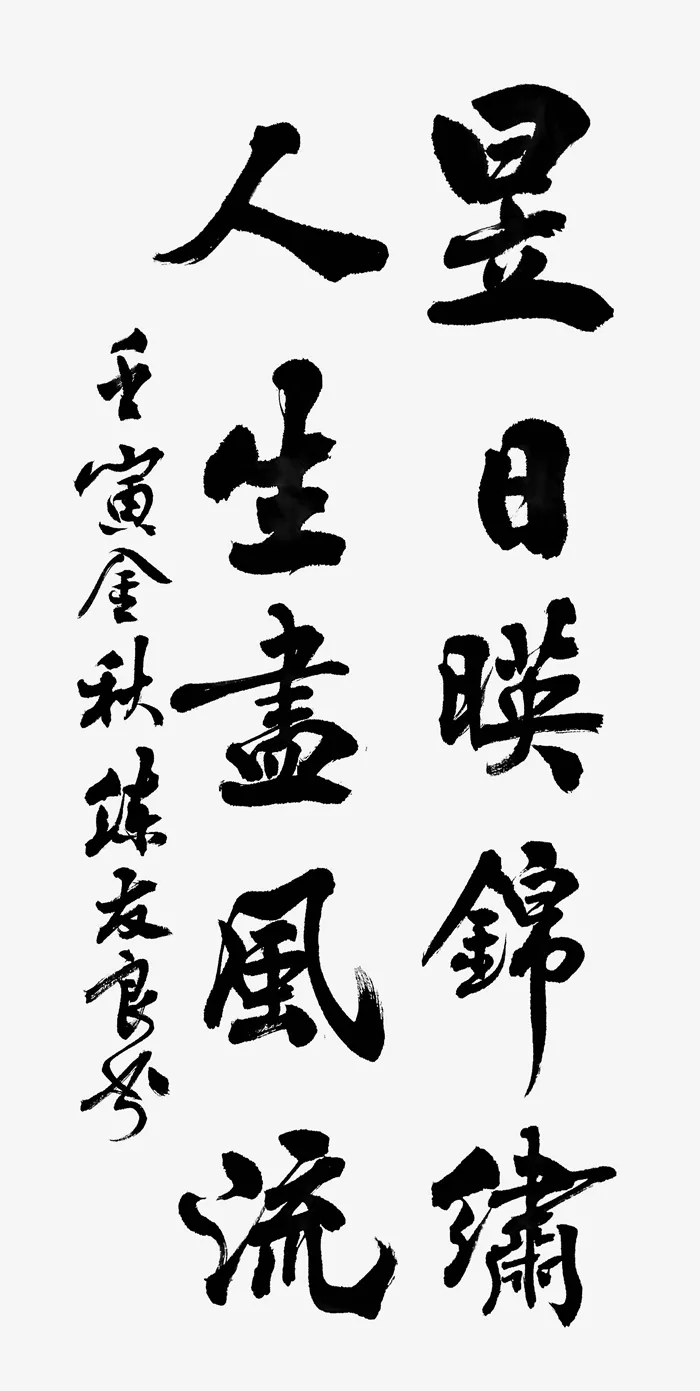 昱日暎錦繡
人生盡風流
壬寅金秋陳友良书